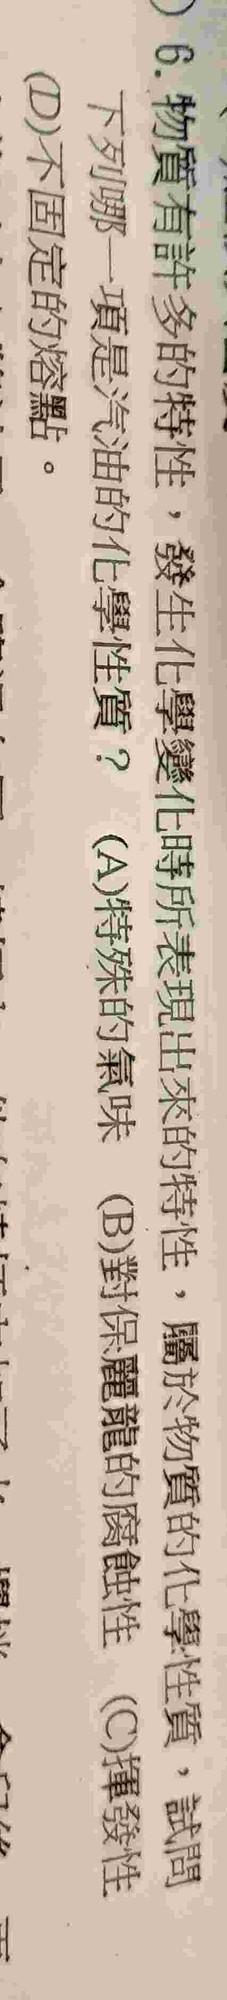 ) 6. 物質有許多的特性，發生化學變化時所表現出來的特性，屬於物質的化學性質，試問
下列哪一項是汽油的化學性質？ (A)特殊的氣味 (B)對保麗龍的腐蝕性 (C)揮發性
(D)不固定的熔點。